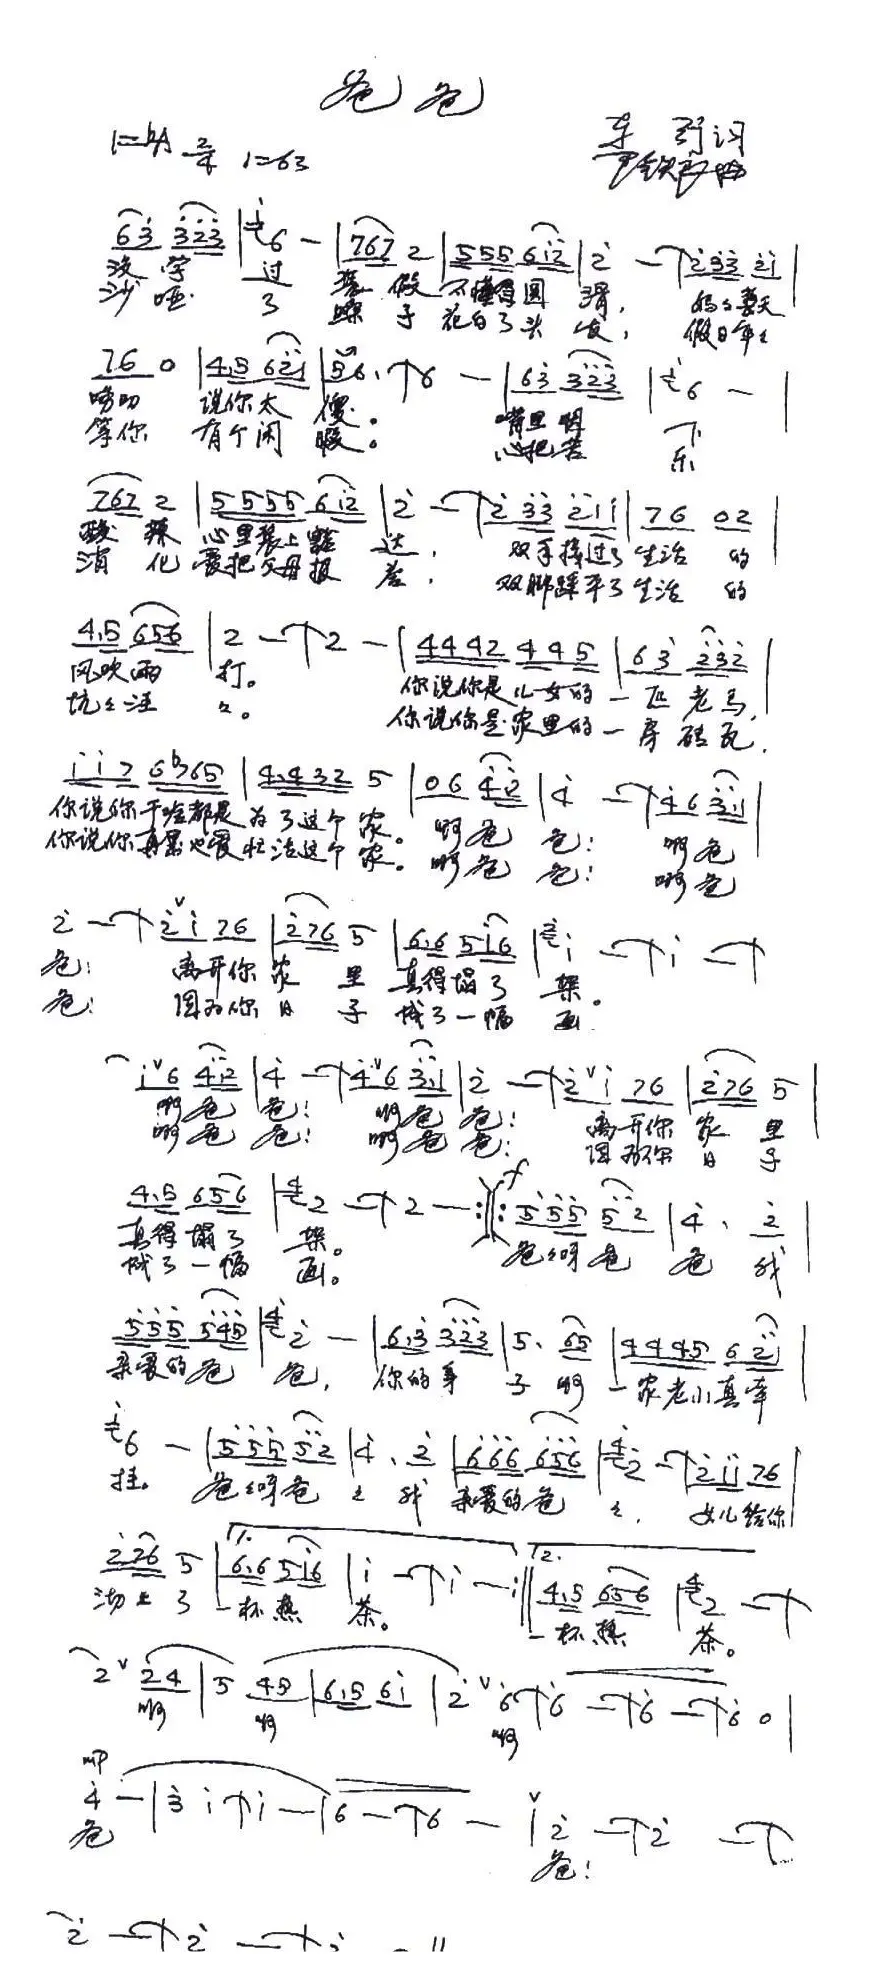 爸爸
1=♭A 2/4 1=63
车 行词
63 323 | 6 — | 767 2 | 555 612 | 2 — | 233 21 |
没 学 过 装 傻 不懂得圆 滑， 妈妈整天
沙 哑 了 嗓 子 花白了头 发， 假日年年
76 0 | 4.5 621 | 56. | 6 — | 63 323 | 6 — |
唠叨 说你太 傻。 嘴里咽 下
等你 有个闲 暇。 心把苦 乐
767 2 | 5555 612 | 2 — | 2 33 211 | 76 02 |
酸 辣 心里装上豁 达， 双手接过了生活 的
消 化 爱把父母报 答， 双脚踩平了生活 的
4.5 656 | 2 — | 2 — | 4442 445 | 63 232 |
风吹雨 打。 你说你是儿女的一匹老马，
坑坑洼 洼。 你说你是家里的一房砖瓦，
117 6♭765 | 4.432 5 | 06 412 | 4 — | 46 3.1 |
你说你干啥都是为了这个家。 啊爸 爸！ 啊爸
你说你再累也要忙活这个家。 啊爸 爸！ 啊爸
2 — | 21 76 | 276 5 | 6.6 516 | 1 — | 1 — |
爸！ 离开你家 里 真得塌了 架。
爸！ 因为你日 子 成了一幅 画。
16 412 | 4 — | 46 3.1 | 2 — | 21 76 | 276 5 |
啊爸 爸！ 啊爸 爸！ 离开你 家 里
啊爸 爸！ 啊爸 爸！ 因为你 日 子
4.5 656 | 2 — | 2 — :‖: f 555 52 | 4. 2 |
真得塌了 架。 爸爸呀爸 爸 我
成了一幅 画。
555 545 | 2 — | 6.3 323 | 5. 65 | 4445 621 |
亲爱的爸 爸， 你的身 子 啊 一家老小真牵
6 — | 555 52 | 4. 2 | 666 656 | 2 — | 211 76 |
挂。 爸爸呀爸 爸 我 亲爱的爸 爸， 女儿给你
226 5 | 1. 6.6 516 | 1 — | 1 — :‖ 2. 4.5 656 | 2 — |
沏上 了 一杯热 茶。 一杯热 茶。
2 24 | 5 45 | 6.5 61 | 2 6 | 6 — | 6 — | 6 0 |
啊 啊 啊
mp
4 — | 3 1 | 1 — | 6 — | 6 — | 2 — | 2 — |
爸 爸！
2 — | 2 —